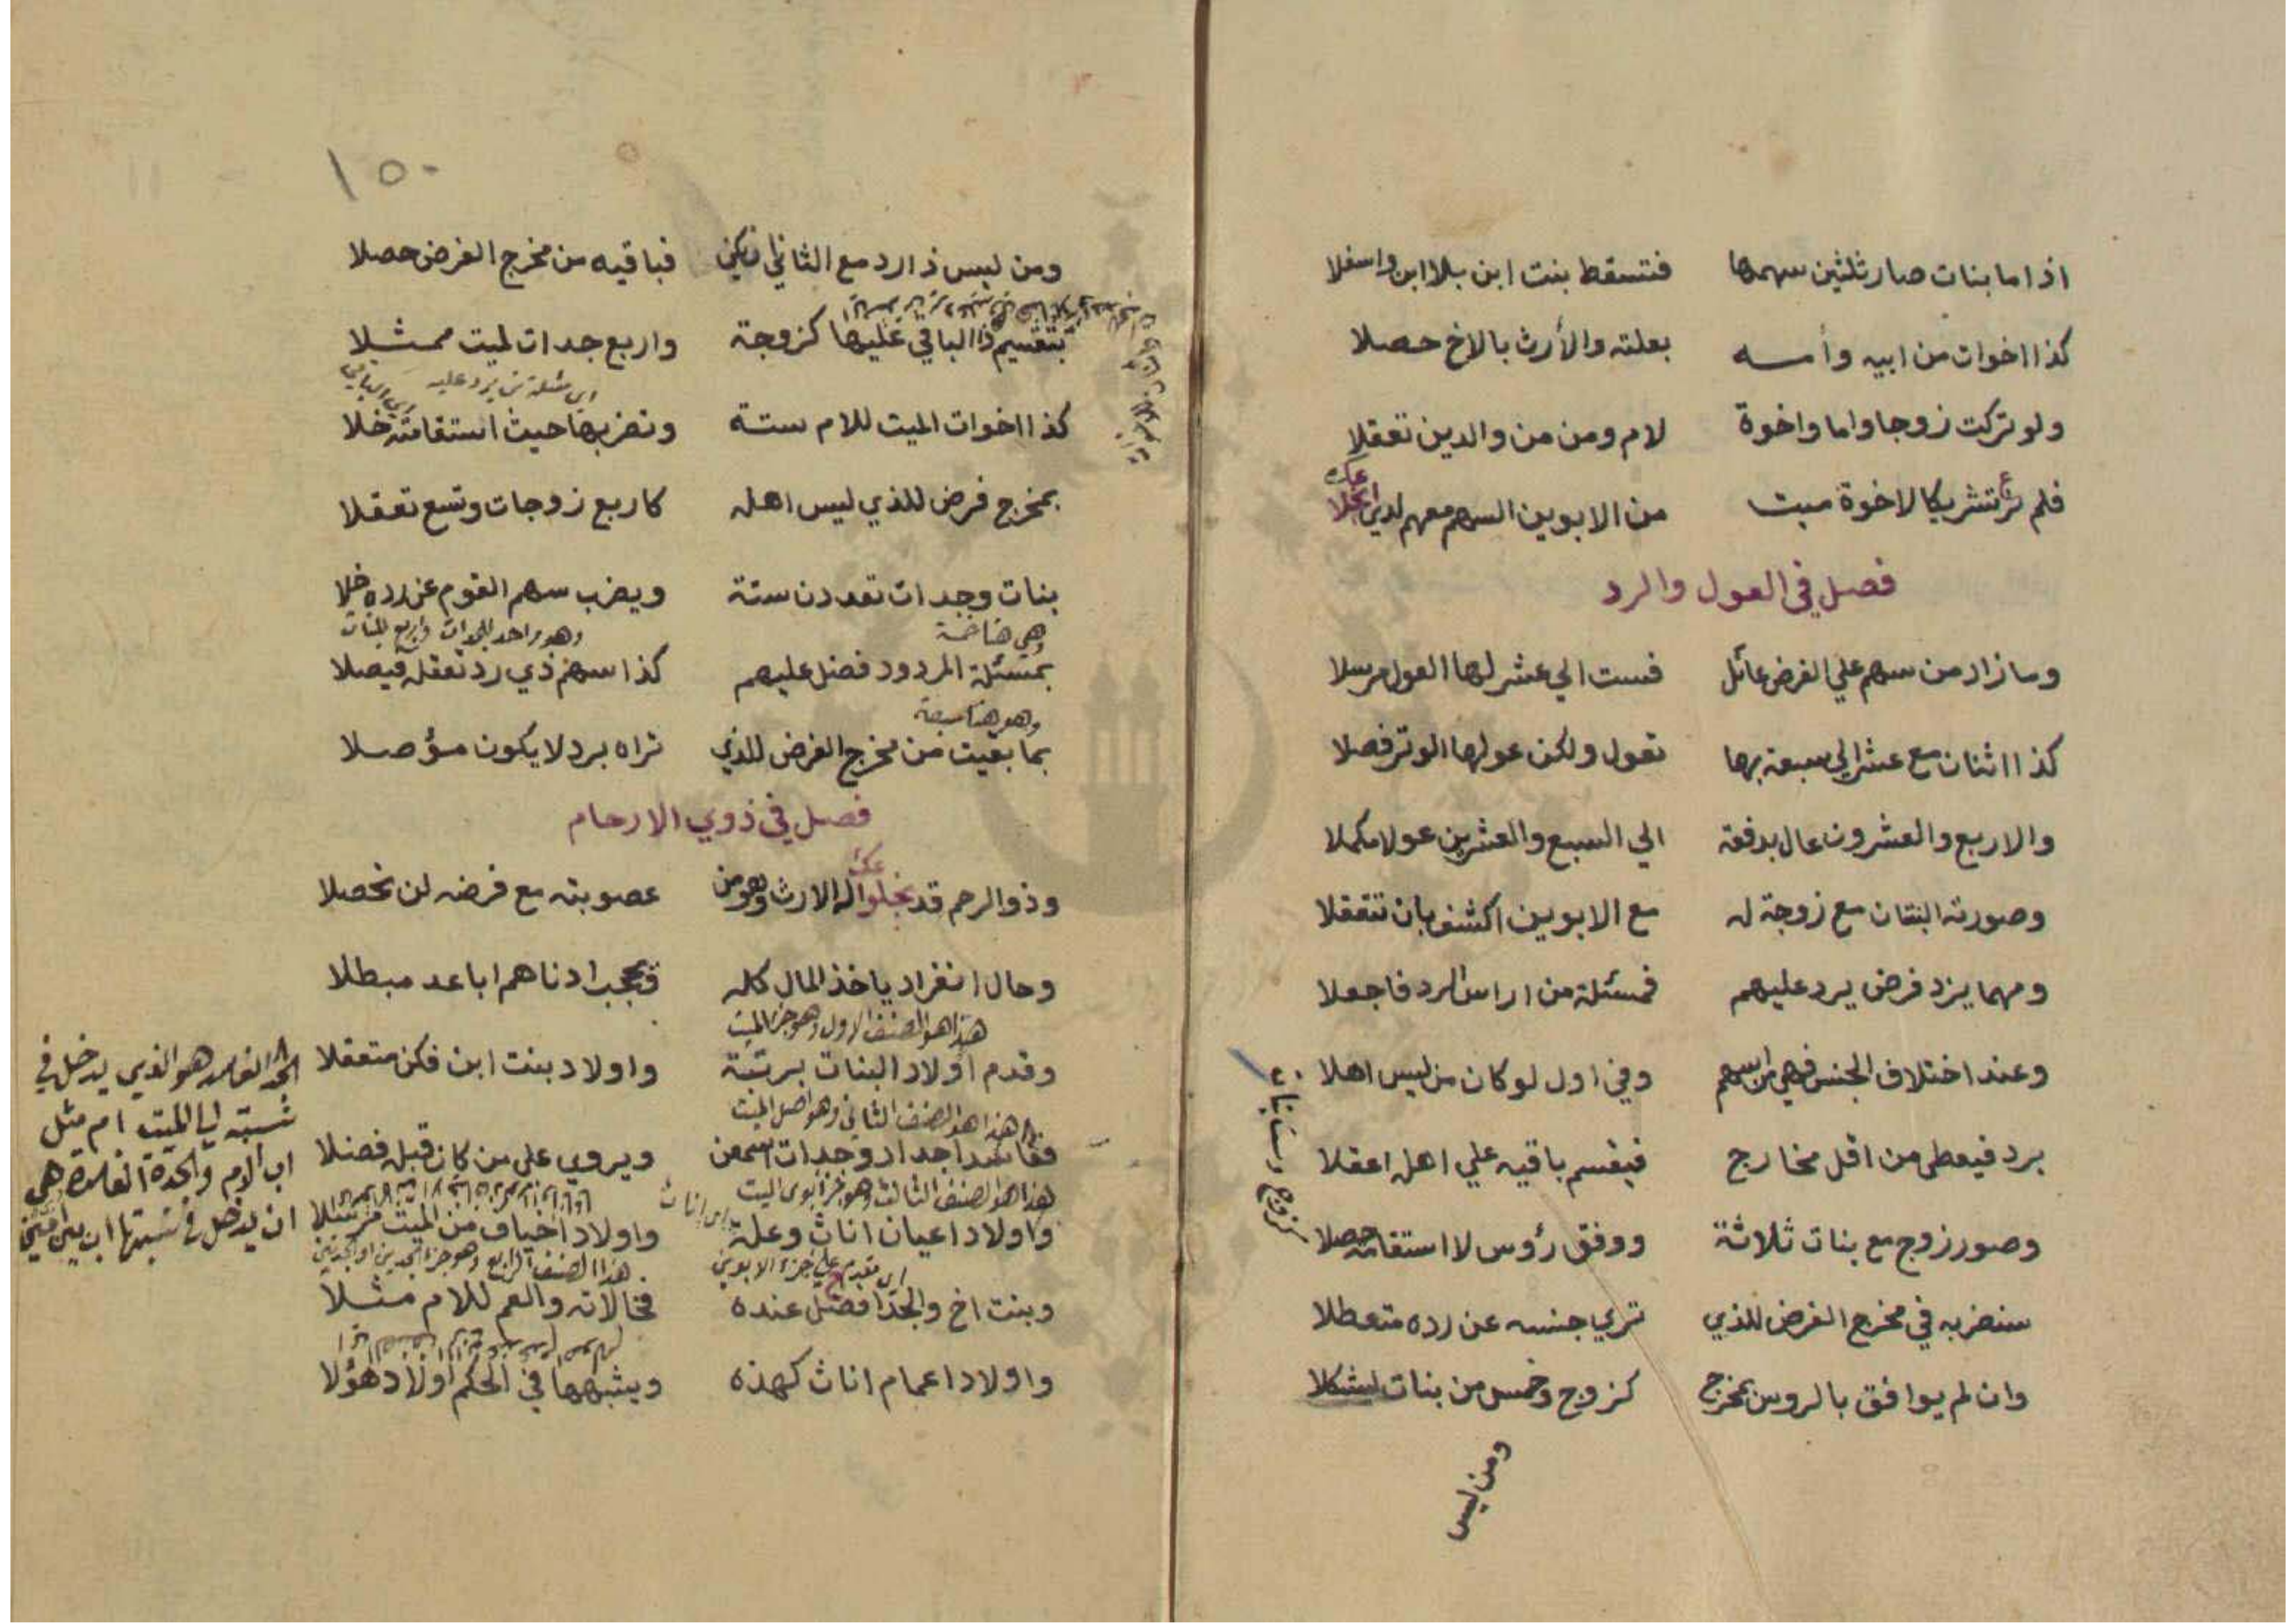 اذا ما بنات صار ثلثين سهمها فتسقط بنت ابن بلا ابن واسفلا
كذا اخوات من ابيه وأمه بعلته والأرث بالاخ حصلا
ولو تركت زوجا واما واخوة لام ومن من والدين تعقلا
فلم تر تشريكا لاخوة ميت من الابوين السهم معهم لدي
فصل في العول والرد
وما زاد من سهم علي الفرض عائل فست الي عشر لها العول مرسلا
كذا اثنان مع عشر الي سبعة بها تعول ولكن عولها الوتر فصلا
والاربع والعشرون عال بدفعة الي السبع والعشرين عولا مكملا
وصورته البنتان مع زوجة له مع الابوين اكشف بان تتعقلا
ومهما يزد فرض يرد عليهم فمسئلة من اراس الرد فاجعلا
وعند اختلاف الجنس فهي من اسهم وفي اول لو كان من ليس اهلا
برد فيعطى من اقل مخارج فيقسم باقيه علي اهله اعقلا
وصور زوج مع بنات ثلاثة ووفق رؤس لا استقامة حصلا
سنضربه في مخرج الفرض للذي تري جنسه عن رده متعطلا
كزوج وست بنات
وان لم يوافق بالروس بمخرج كزوج وخمس من بنات ليشكلا
ومن ليس
١٥٠
ومن ليس ذا رد مع الثاني فباقيه من مخرج الفرض حصلا
بتقسيم ذا الباقي عليها كزوجة واربع جدات لميت ممثلا
اي مسئلة من يرد عليه
كذا اخوات الميت للام ستة ونضربها حيث استقامته خلا
بمخرج فرض للذي ليس اهله كاربع زوجات وتسع تعقلا
بنات وجدات تعددن ستة ويضرب سهم القوم عن رده خلا
وهي هنا خمسة وهو واحد للجدات واربع للبنات
بمسئلة المردود فضل عليهم كذا سهم ذي رد تعقله فيصلا
وهو هنا سبعة
بما بقيت من مخرج الفرض للذي تراه برد لا يكون مؤصلا
فصل في ذوي الارحام
وذو الرحم قد الارث وهو من عصوبته مع فرضه لن تحصلا
وحال انفراد ياخذ المال كله فيحجب ادناهم اباعد مبطلا
هذا هو الصنف الاول وهو جزء الميت
وقدم اولاد البنات برتبة واولاد بنت ابن فكن متعقلا
هذا هو الصنف الثاني وهو اصل الميت
ففاسد اجداد وجدات اسمعن ويروي علي من كان قبل فضلا
هذا هو الصنف الثالث وهو جزء ابوي الميت
واولاد اعيان اناث وعلة واولاد اخياف من الميت مرسلا
اي مقدم علي جزء الابوين هذا الصنف الرابع وهو جزء الجدين او الجدتين
وبنت اخ والجد افضل عنده فخالاته والعم للام مثلا
واولاد اعمام اناث كهذه ويشبهها في الحكم اولاد هؤلا
الجد الفاسد هو الذي يدخل في
نسبته الي الميت ام مثل
اب الام والجدة الفاسدة هي
ان يدخل في نسبتها اب بين